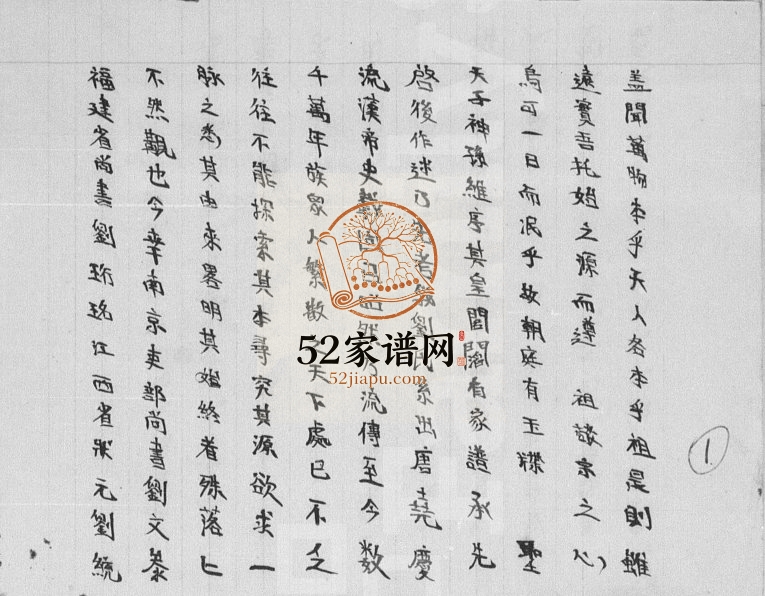 盖聞萬物本乎天人各本乎祖是則雖
遠實吾托始之源而遵 祖敬宗之心
烏可一日而泯乎故朝庭有玉牒 聖
天子神孫維亨其皇閭閻有家譜承先
啓後作述乃 者 劉氏系出唐堯慶
流漢帝史 流傳至今数
千萬年族眾人繁散 天下處已不乏
往往不能探索其本尋究其源欲求一
脉之悉其由来畧明其始终者殊落匕
不然觀也今幸南京吏部尚書劉文泰
福建省尚書劉珩 江西省狀元劉統
1
52家谱网
52jiapu.com